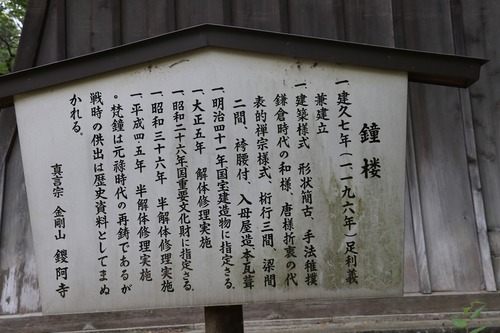 鐘楼
一建久七年(一一九六年)足利義
兼建立
一建築様式 形状簡古、手法稚撲
鎌倉時代の和様、唐様折衷の代
表的禅宗様式、桁行三間、梁間
二間、袴腰付、入母屋造本瓦葺
一明治四十一年国宝建造物に指定さる.
一大正五年 解体修理実施
一昭和二十六年国重要文化財に指定さる.
一昭和三十六年 半解体修理実施
一平成四・五年 半解体修理実施
。梵鐘は元禄時代の再鋳であるが
戦時の供出は歴史資料としてまぬ
かれる。
真言宗 金剛山 鑁阿寺